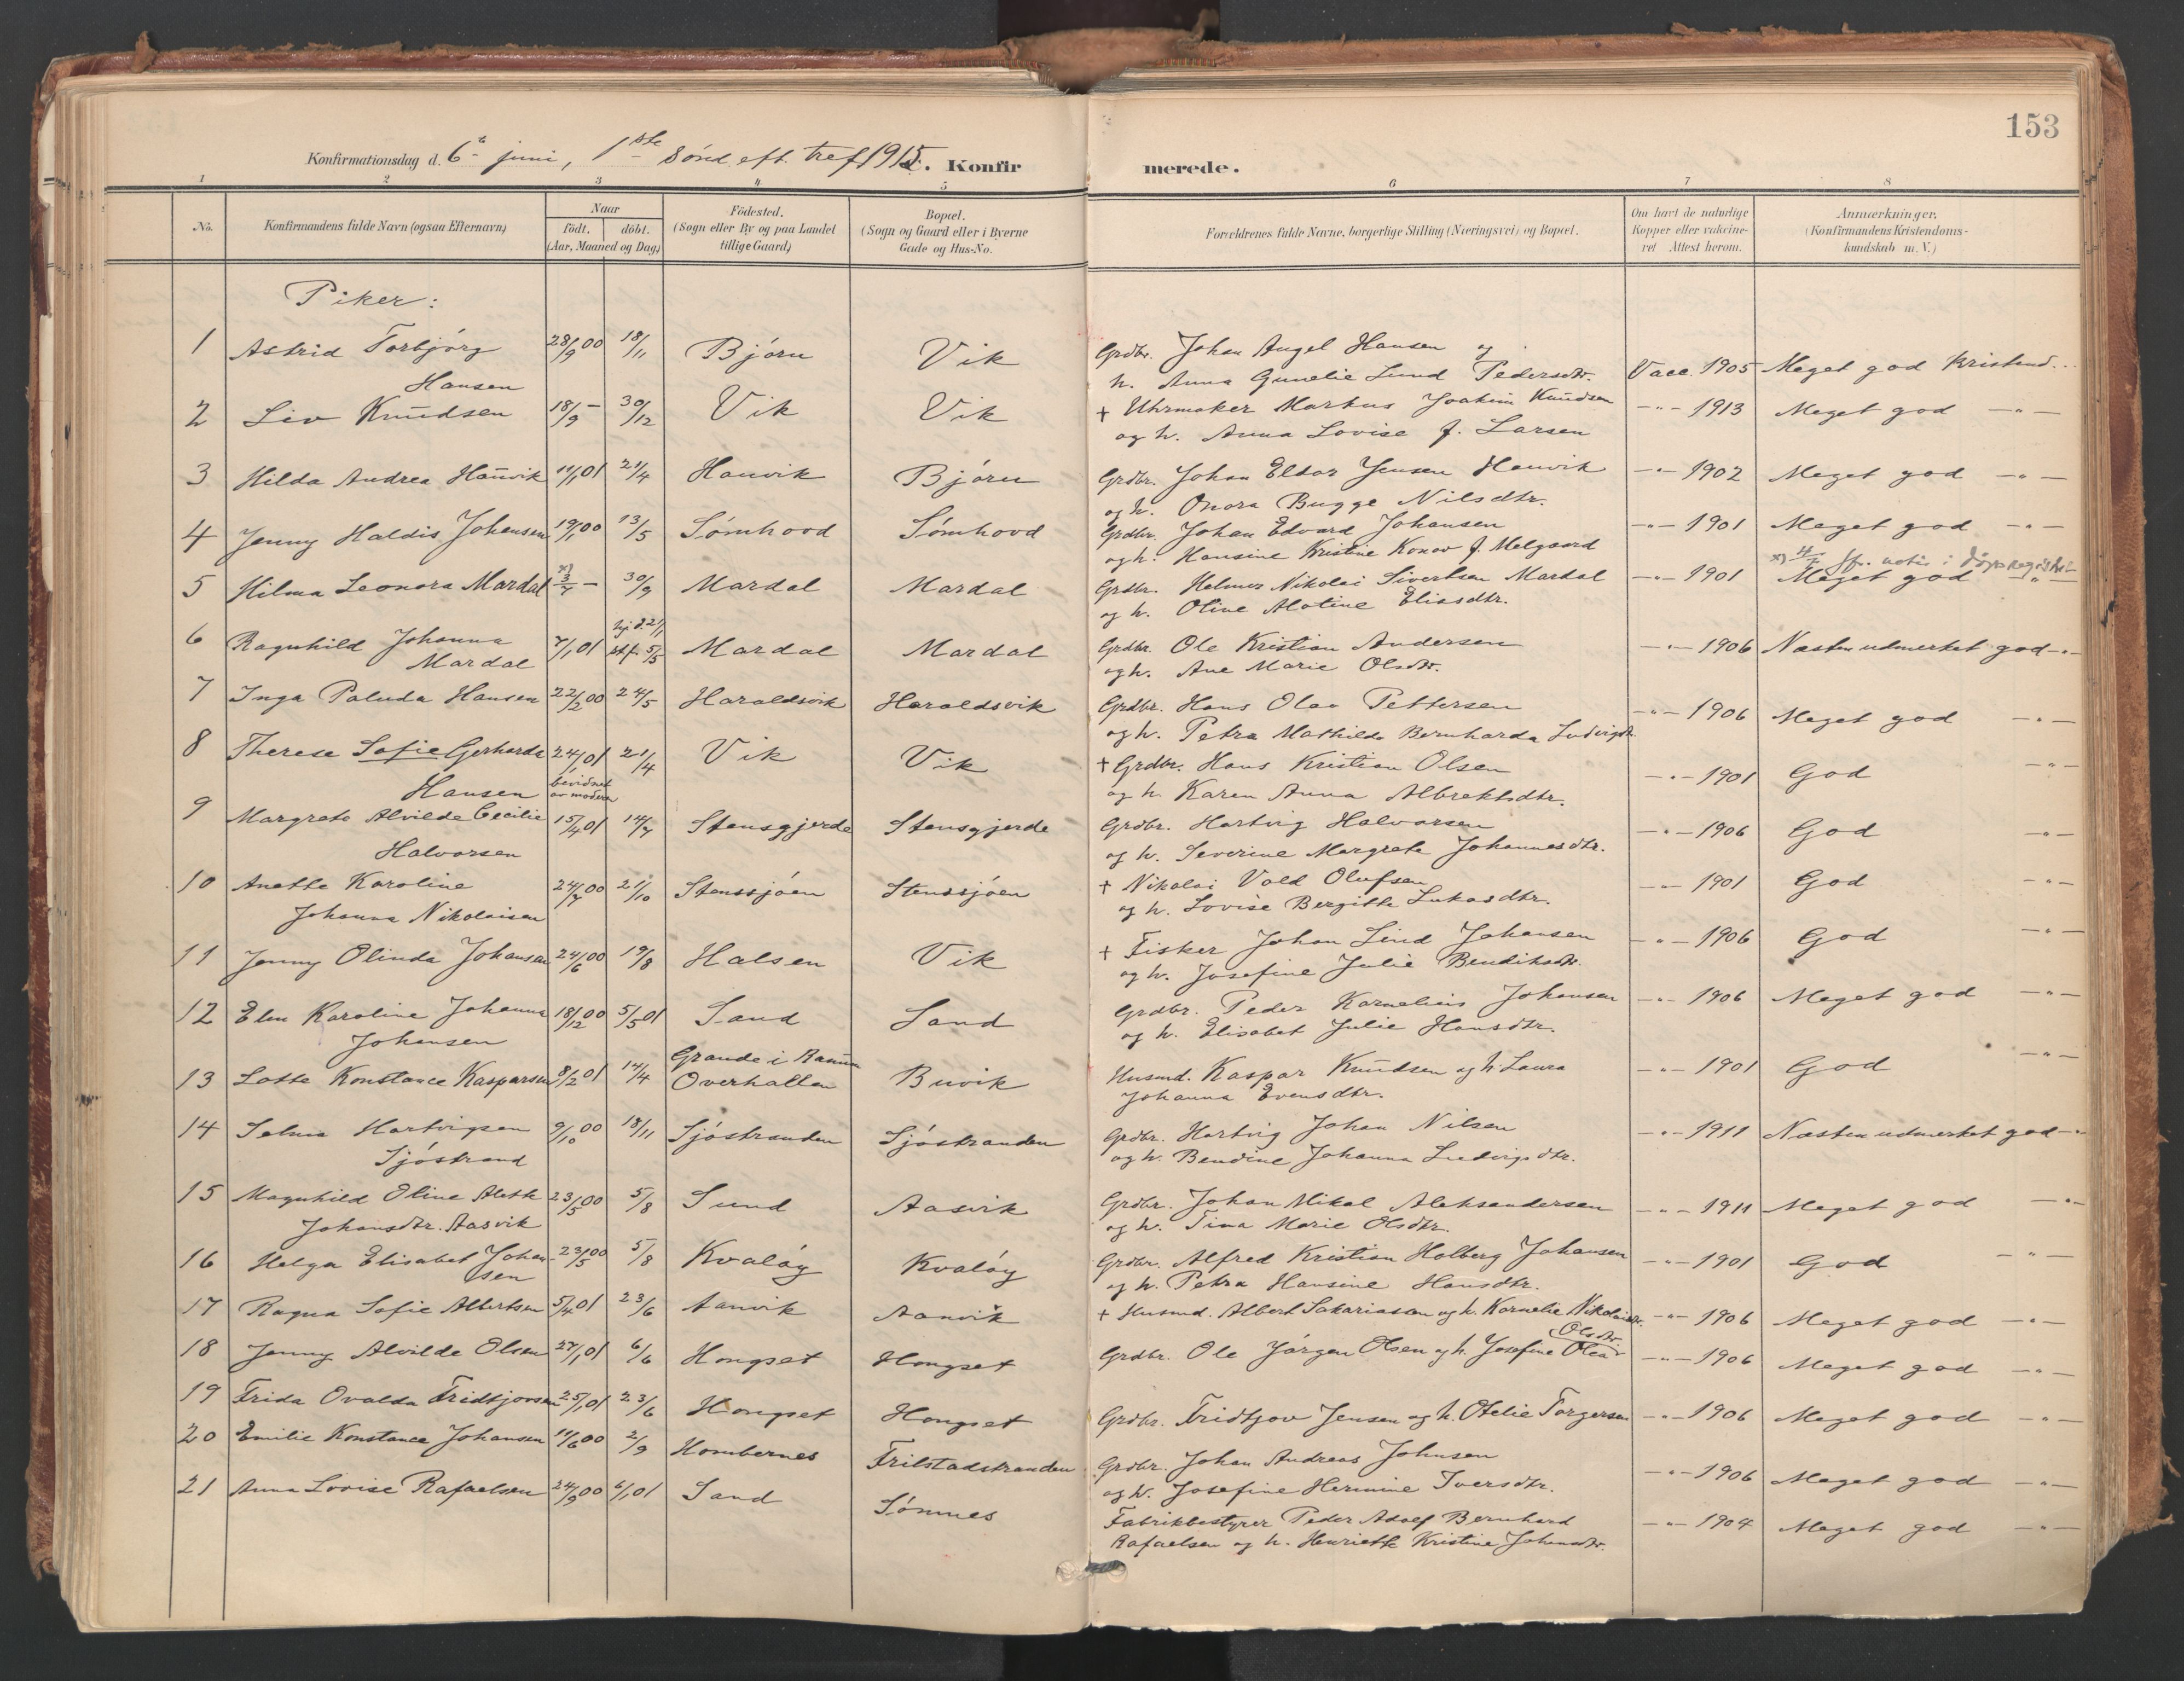 153
Konfirmationsdag d. 6te juni, 1ste Sönd. eft. tref. 1915. Konfirmerede.
1 2 3 4 5 6 7 8
No. Konfirmandens fulde Navn (ogsaa Efternavn) Naar födt. döbt. (Aar, Maaned og Dag) Födested. (Sogn eller By og paa Landet tillige Gaard) Bopæl. (Sogn og Gaard eller i Byerne Gade og Hus-No. Forældrenes fulde Navne, borgerlige Stilling (Næringsvei) og Bopæl. Om havt de naturlige Kopper eller vakcineret Attest herom. Anmærkninger. (Konfirmandens Kristendomskundskab m. V.)
Piker:
1 Astrid Torbjörg Hansen 28/9 00 18/11 Björn Vik Grdbr. Johan Angel Hansen og
h. Anna Gunelie Lund Pedersdtr. Vacc. 1905 Meget god Kristend...
2 Liv Knudsen 18/9 – 30/12 Vik Vik + Uhrmaker Markus Joakim Knudsen
og h. Anna Lovise f. Larsen –"– 1913 Meget god –"–
3 Hilda Andrea Hauvik 11/1 01 21/4 Hauvik Björn Grdbr. Johan Eldor Jensen Hauvik
og h. Onora Bugge Nilsdtr. –"– 1902 Meget god –"–
4 Jenny Haldis Johansen 19/1 00 13/5 Sömhovd Sömhovd Grdbr. Johan Edvard Johansen
og h. Hansine Kristine Konov f. Melgaard –"– 1901 Meget god –"–
x) 4/7 jfr. notis i döpsregistret
5 Hilma Leonora Mardal x) 3/7 – 30/9 Mardal Mardal Grdbr. Helmer Nikolai Sivertsen Mardal
og h. Olive Alotine Eliasdtr. –"– 1901 Meget god –"–
6 Ragnhild Johanna Mardal 7/1 01 hj. d. 22/1 st.f. 5/5 Mardal Mardal Grdbr. Ole Kristian Andersen
og h. Ane Marie Olsdtr. –"– 1906 Næsten udmerket god –"–
7 Inga Paluda Hansen 22/2 00 24/5 Haraldsvik Haraldsvik Grdbr. Hans Olav Pettersen
og h. Petra Mathilde Bernharda Ludvigsdtr. –"– 1906 Meget god –"–
8 Therese Sofie Gerharda Hansen 24/1 01 bevidnet av moderen 21/4 Vik Vik + Grdbr. Hans Kristian Olsen
og h. Karen Anna Albrektsdtr. –"– 1901 God –"–
9 Margrete Alvilde Cecilie Halvorsen 15/4 01 14/7 Stensgjerde Stensgjerde Grdbr. Hartvig Halvorsen
og h. Severine Margrete Johannesdtr. –"– 1906 God –"–
10 Anette Karoline Johanna Nikolaisen 24/7 00 21/10 Stenssjöen Stenssjöen + Nikolai Vold Olufsen
og h. Lovise Bergitte Lukasdtr. –"– 1901 God –"–
11 Jenny Olinda Johansen 24/6 00 19/8 Halsen Vik + Fisker Johan Lind Johansen
og h. Josefine Julie Bendiksdtr. –"– 1906 God –"–
12 Elen Karoline Johanna Johansen 18/12 00 5/5 01 Sand Sand Grdbr. Peder Kornelius Johansen
og h. Elisabet Julie Hansdtr. –"– 1906 Meget god –"–
13 Lotte Konstance Kasparsen 8/2 01 14/4 Grande i Ranum Overhallen Buvik Husmd. Kaspar Knudsen og h. Laura
Johanna Evensdtr. –"– 1901 God –"–
14 Selma Hartvigsen Sjöstrand 9/10 00 18/11 Sjöstranden Sjöstranden Grdbr. Hartvig Johan Nilsen
og h. Bendine Johanna Ludvigsdtr. –"– 1911 Næsten udmerket god –"–
15 Magnhild Oline Aleth Johansdtr. Aasvik 23/5 00 5/8 Sund Aasvik Grdbr. Johan Mikal Aleksandersen
og h. Tina Marie Olsdtr. –"– 1911 Meget god –"–
16 Helga Elisabet Johansen 23/5 00 5/8 Kvalöy Kvalöy Grdbr. Alfred Kristian Holberg Johansen
og h. Petra Hansine Hansdtr. –"– 1901 God –"–
17 Ragna Sofie Albertsen 5/4 01 23/6 Aanvik Aanvik + Husmd. Albert Sakariassen og h. Kornelie Nikolaisdtr. –"– 1906 Meget god –"–
18 Jenny Alvilde Olsen 27/1 01 6/6 Hongset Hongset Grdbr. Ole Jörgen Olsen og h. Josefine Olea Olsdtr. –"– 1906 Meget god –"–
19 Frida Ovalda Fridtjovsen 25/1 01 23/6 Hongset Hongset Grdbr. Fridtjov Jensen og h. Otelie Torgersen –"– 1906 Meget god –"–
20 Emilie Konstance Johansen 11/6 00 2/9 Hombernes Trilstadstranden Grdbr. Johan Andreas Johnsen
og h. Josefine Hermine Iversdtr. –"– 1906 Meget god –"–
21 Anna Lovise Rafaelsen 24/9 00 6/1 01 Sand Sömnes Fabrikbestyrer Peder Adolf Bernhard
Rafaelsen og h. Henriette Kristine Johansdtr. –"– 1904 Meget god –"–